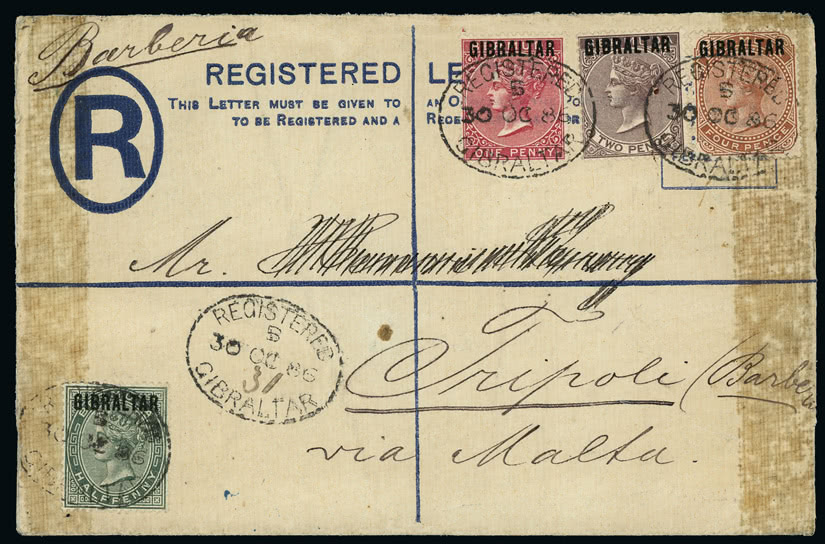 Barberia
GIBRALTAR
GIBRALTAR
GIBRALTAR
REGISTERED
THIS LETTER MUST BE GIVEN TO
TO BE REGISTERED AND A
R
REGISTERED
5
30 OC 86
GIBRALTAR
REGISTERED
5
30 OC 86
GIBRALTAR
ONE PENNY
TWO PEN
FOUR PENCE
Mr.
REGISTERED
5
30 OC 86
31
GIBRALTAR
Tripoli (Barber
via Malta.
GIBRALTAR
HALFPENNY